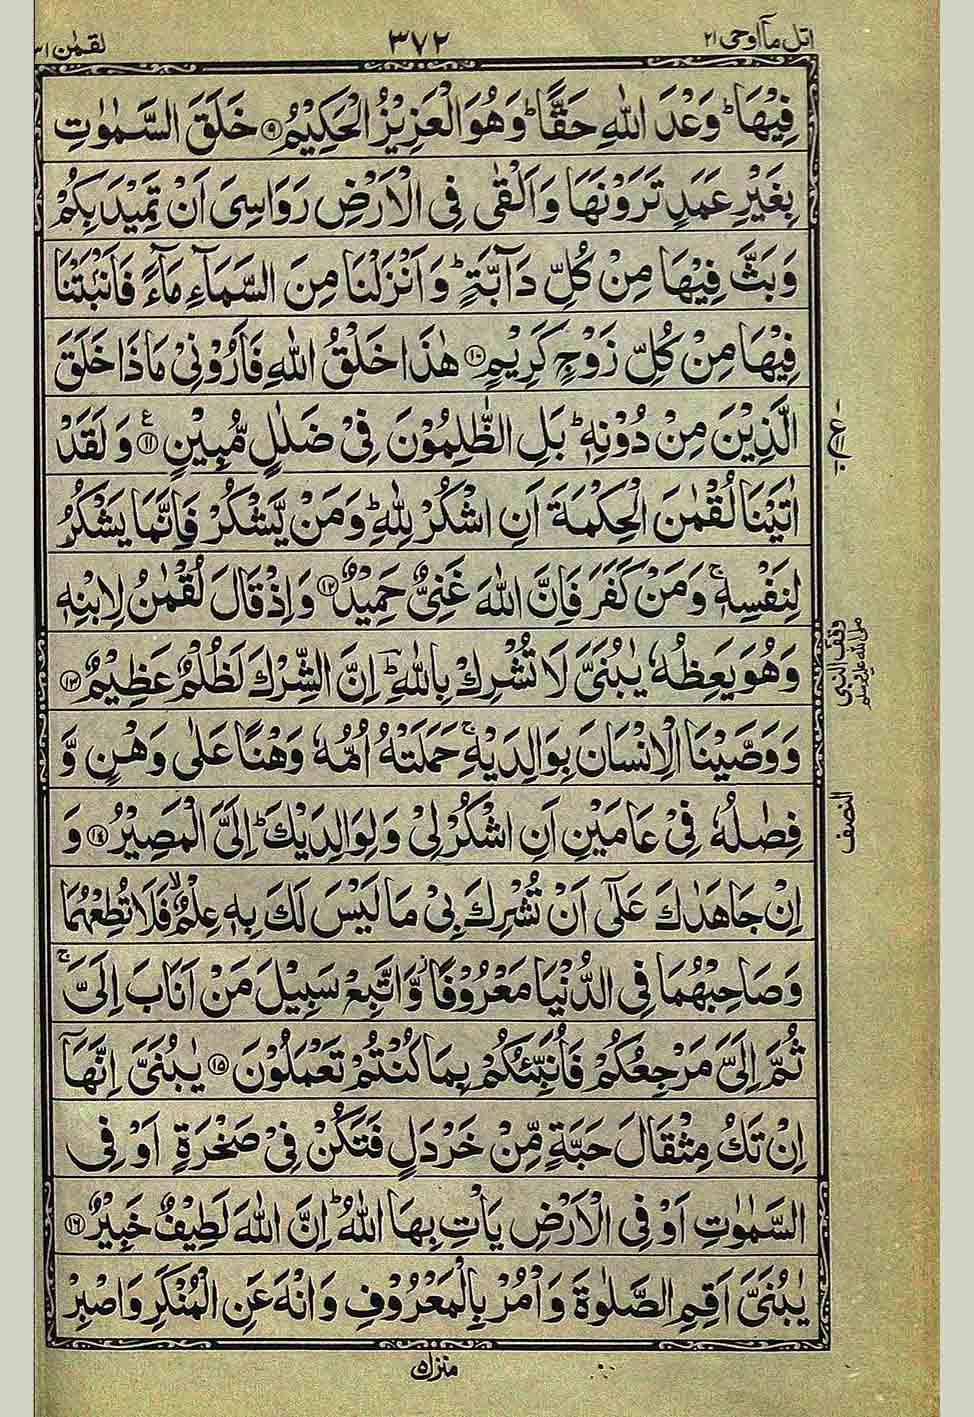 اتل مآ اوحی ۲۱
۳۷۲
لقمٰن ۳۱
فِيْهَا ؕ وَعْدَ اللّٰهِ حَقًّا ؕ وَهُوَ الْعَزِيْزُ الْحَكِيْمُ ۹ خَلَقَ السَّمٰوٰتِ
بِغَيْرِ عَمَدٍ تَرَوْنَهَا وَاَلْقٰى فِى الْاَرْضِ رَوَاسِىَ اَنْ تَمِيْدَ بِكُمْ
وَبَثَّ فِيْهَا مِنْ كُلِّ دَآبَّةٍ ؕ وَاَنْزَلْنَا مِنَ السَّمَآءِ مَآءً فَاَنْۢبَتْنَا
فِيْهَا مِنْ كُلِّ زَوْجٍ كَرِيْمٍ ۱۰ هٰذَا خَلْقُ اللّٰهِ فَاَرُوْنِىْ مَاذَا خَلَقَ
الَّذِيْنَ مِنْ دُوْنِهٖ ؕ بَلِ الظّٰلِمُوْنَ فِىْ ضَلٰلٍ مُّبِيْنٍ ۱۱ ع وَلَقَدْ
اٰتَيْنَا لُقْمٰنَ الْحِكْمَةَ اَنِ اشْكُرْ لِلّٰهِ ؕ وَمَنْ يَّشْكُرْ فَاِنَّمَا يَشْكُرُ
لِنَفْسِهٖ ۚ وَمَنْ كَفَرَ فَاِنَّ اللّٰهَ غَنِىٌّ حَمِيْدٌ ۱۲ وَاِذْ قَالَ لُقْمٰنُ لِابْنِهٖ
وَهُوَ يَعِظُهٗ يٰبُنَىَّ لَا تُشْرِكْ بِاللّٰهِ ؕ اِنَّ الشِّرْكَ لَظُلْمٌ عَظِيْمٌ ۱۳
وقف النبی صلی الله علیه وسلم
وَوَصَّيْنَا الْاِنْسَانَ بِوَالِدَيْهِ ۚ حَمَلَتْهُ اُمُّهٗ وَهْنًا عَلٰى وَهْنٍ وَّ
فِصٰلُهٗ فِىْ عَامَيْنِ اَنِ اشْكُرْ لِىْ وَلِوَالِدَيْكَ ؕ اِلَىَّ الْمَصِيْرُ ۱۴ وَ
النصف
اِنْ جَاهَدٰكَ عَلٰٓى اَنْ تُشْرِكَ بِىْ مَا لَيْسَ لَكَ بِهٖ عِلْمٌ ۙ فَلَا تُطِعْهُمَا
وَصَاحِبْهُمَا فِى الدُّنْيَا مَعْرُوْفًا ۫ وَّاتَّبِعْ سَبِيْلَ مَنْ اَنَابَ اِلَىَّ ۚ
ثُمَّ اِلَىَّ مَرْجِعُكُمْ فَاُنَبِّئُكُمْ بِمَا كُنْتُمْ تَعْمَلُوْنَ ۱۵ يٰبُنَىَّ اِنَّهَآ
اِنْ تَكُ مِثْقَالَ حَبَّةٍ مِّنْ خَرْدَلٍ فَتَكُنْ فِىْ صَخْرَةٍ اَوْ فِى
السَّمٰوٰتِ اَوْ فِى الْاَرْضِ يَاْتِ بِهَا اللّٰهُ ؕ اِنَّ اللّٰهَ لَطِيْفٌ خَبِيْرٌ ۱۶
يٰبُنَىَّ اَقِمِ الصَّلٰوةَ وَاْمُرْ بِالْمَعْرُوْفِ وَانْهَ عَنِ الْمُنْكَرِ وَاصْبِرْ
منزل ۵